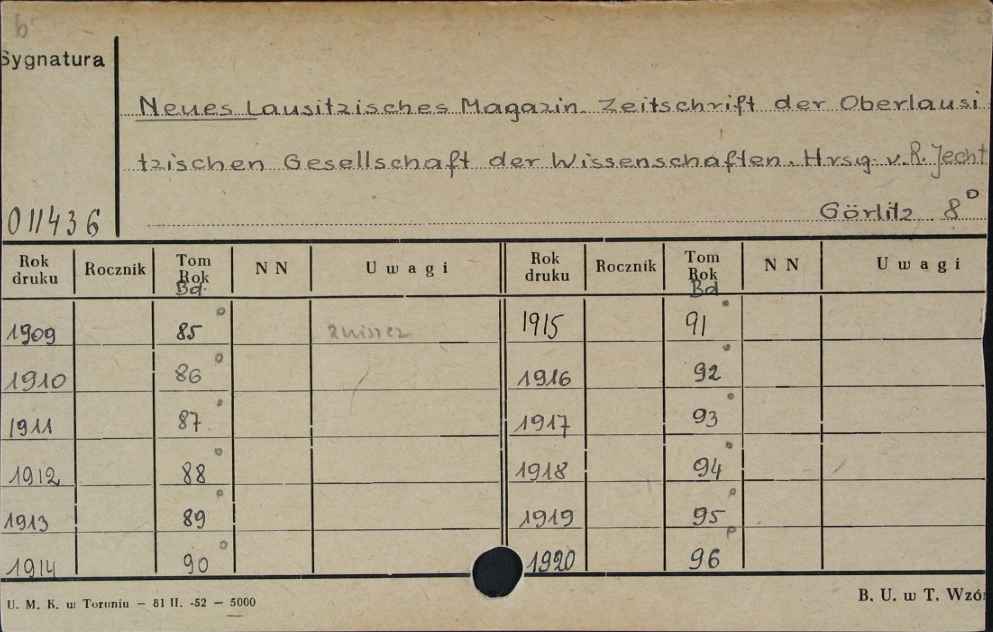 b
Sygnatura
Neues Lausitzisches Magazin. Zeitschrift der Oberlausi
tzischen Gesellschaft der Wissenschaften. Hrsg. v. R. Jecht
011436
Görlitz 8°
Rok druku Rocznik Tom Rok Bd. N N Uwagi Rok druku Rocznik Tom Rok Bd N N Uwagi
1909 85 1915 91
1910 86 1916 92
1911 87 1917 93
1912 88 1918 94
1913 89 1919 95
1914 90 1920 96
U. M. K. w Toruniu — 81 II. -52 — 5000
B. U. w T. Wzór